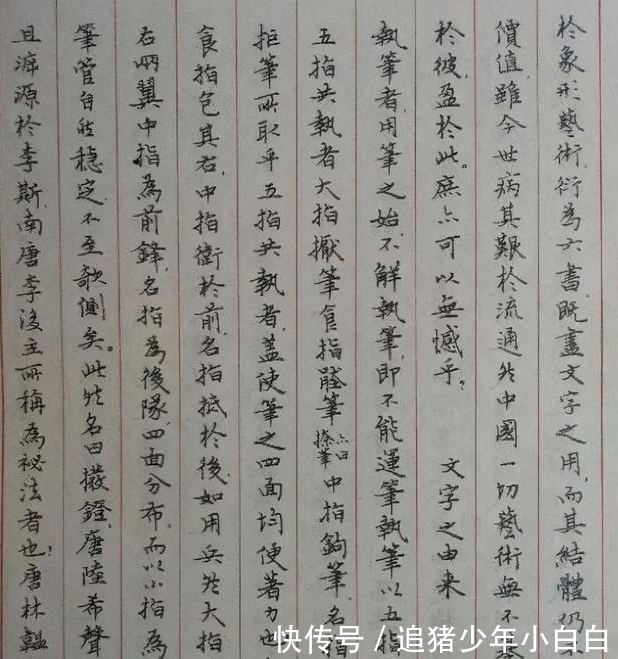 於象形藝術,衍為六書,既盡文字之用,而其結體仍不
價值,雖今世病其艱於流通,然中國一切藝術無不
於彼,盈於此。庶亦可以無憾乎? 文字之由来
執筆者,用筆之始,不解執筆,即不能運筆,執筆以五指
五指共執者大指擫筆食指壓筆亦曰捺筆中指鉤筆,名指
拒筆,所取乎五指共執者,蓋使筆之四面均便著力也
食指包其右,中指衛於前,名指抵於後,如用兵然大指
右兩翼中指為前鋒,名指為後隊,四面分布,而以小指為
筆管自然穩定,不至欹側矣。此然名曰撥鐙,唐陸希聲
且源於李斯,南唐李後主所稱為祕法者也,唐林韞
快传号/追猪少年小白白